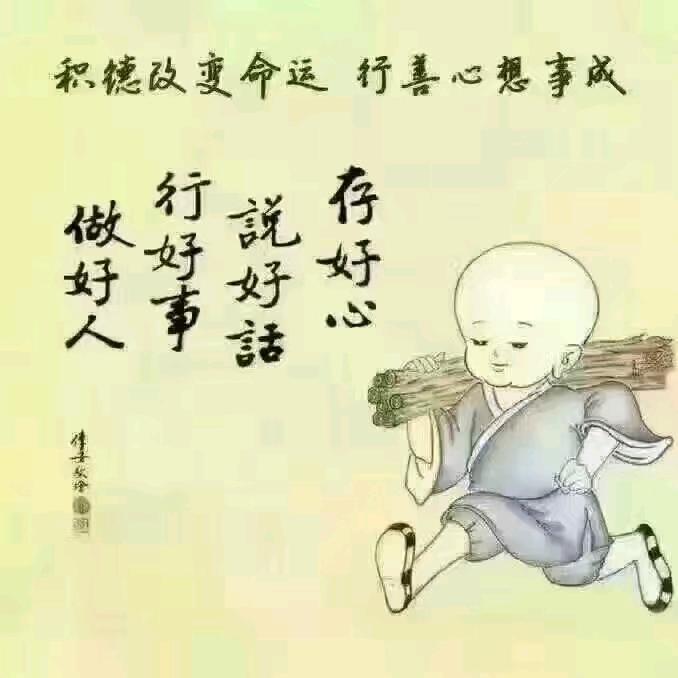 积德改变命运 行善心想事成
存好心
說好話
行好事
做好人